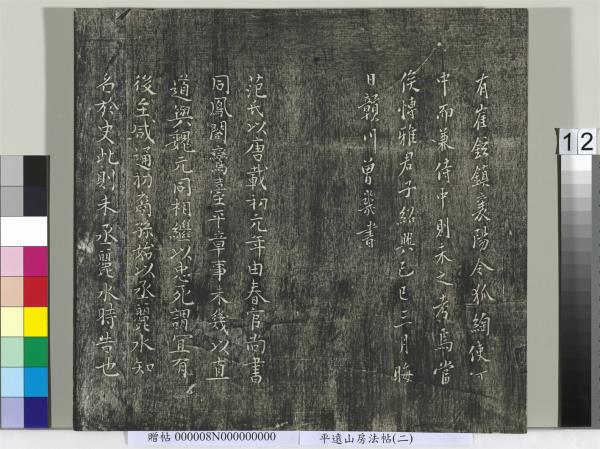 有崔鉉鎮襄陽令狐綯使下
中而兼侍中則未之考焉當
俟博雅君子紹興己巳三月晦
日贑川曾槃書
范氏以唐載初元年由春官尚書
同鳳閣鸞臺平章事未幾以直
道與魏元同相繼以忠死謂宜有
後至咸通初裔孫始以丞麗水知
名於史此則未丞麗水時告也
12
贈帖 000008N000000000 平遠山房法帖(二)